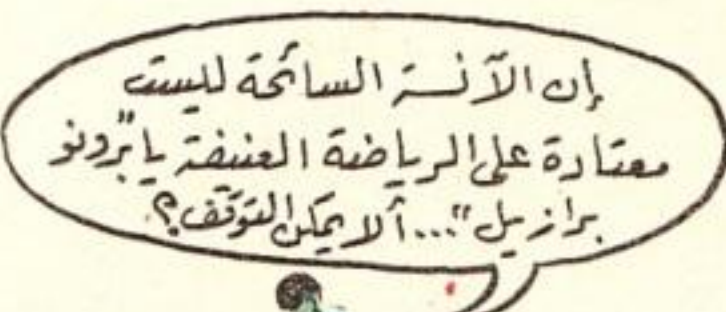 إن الآنسة السائحة لليست
معتادة على الرياضة العنيفة يا "برونو
برازيل"... ألا يمكن التوقف؟